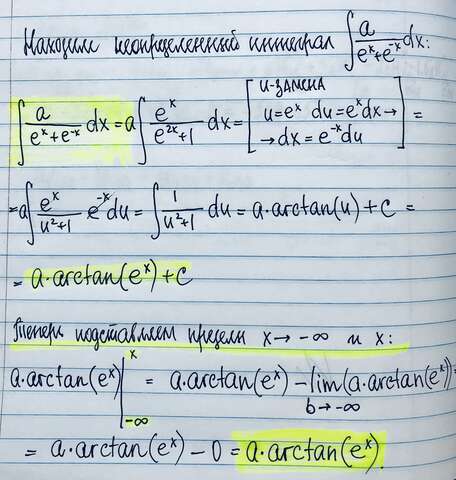 Находим неопределенный интеграл ∫ a/(eˣ+e⁻ˣ) dx:
∫ a/(eˣ+e⁻ˣ) dx = a∫ eˣ/(e²ˣ+1) dx = [u-замена u=eˣ du=eˣdx→ →dx=e⁻ˣdu] =
=a∫ eˣ/(u²+1) e⁻ˣdu = ∫ 1/(u²+1) du = a·arctan(u)+c =
= a·arctan(eˣ)+c
Теперь подставляем пределы x→-∞ и x:
a·arctan(eˣ)|₋∞ˣ = a·arctan(eˣ) - lim b→-∞ (a·arctan(eˣ))=
= a·arctan(eˣ) - 0 = a·arctan(eˣ).